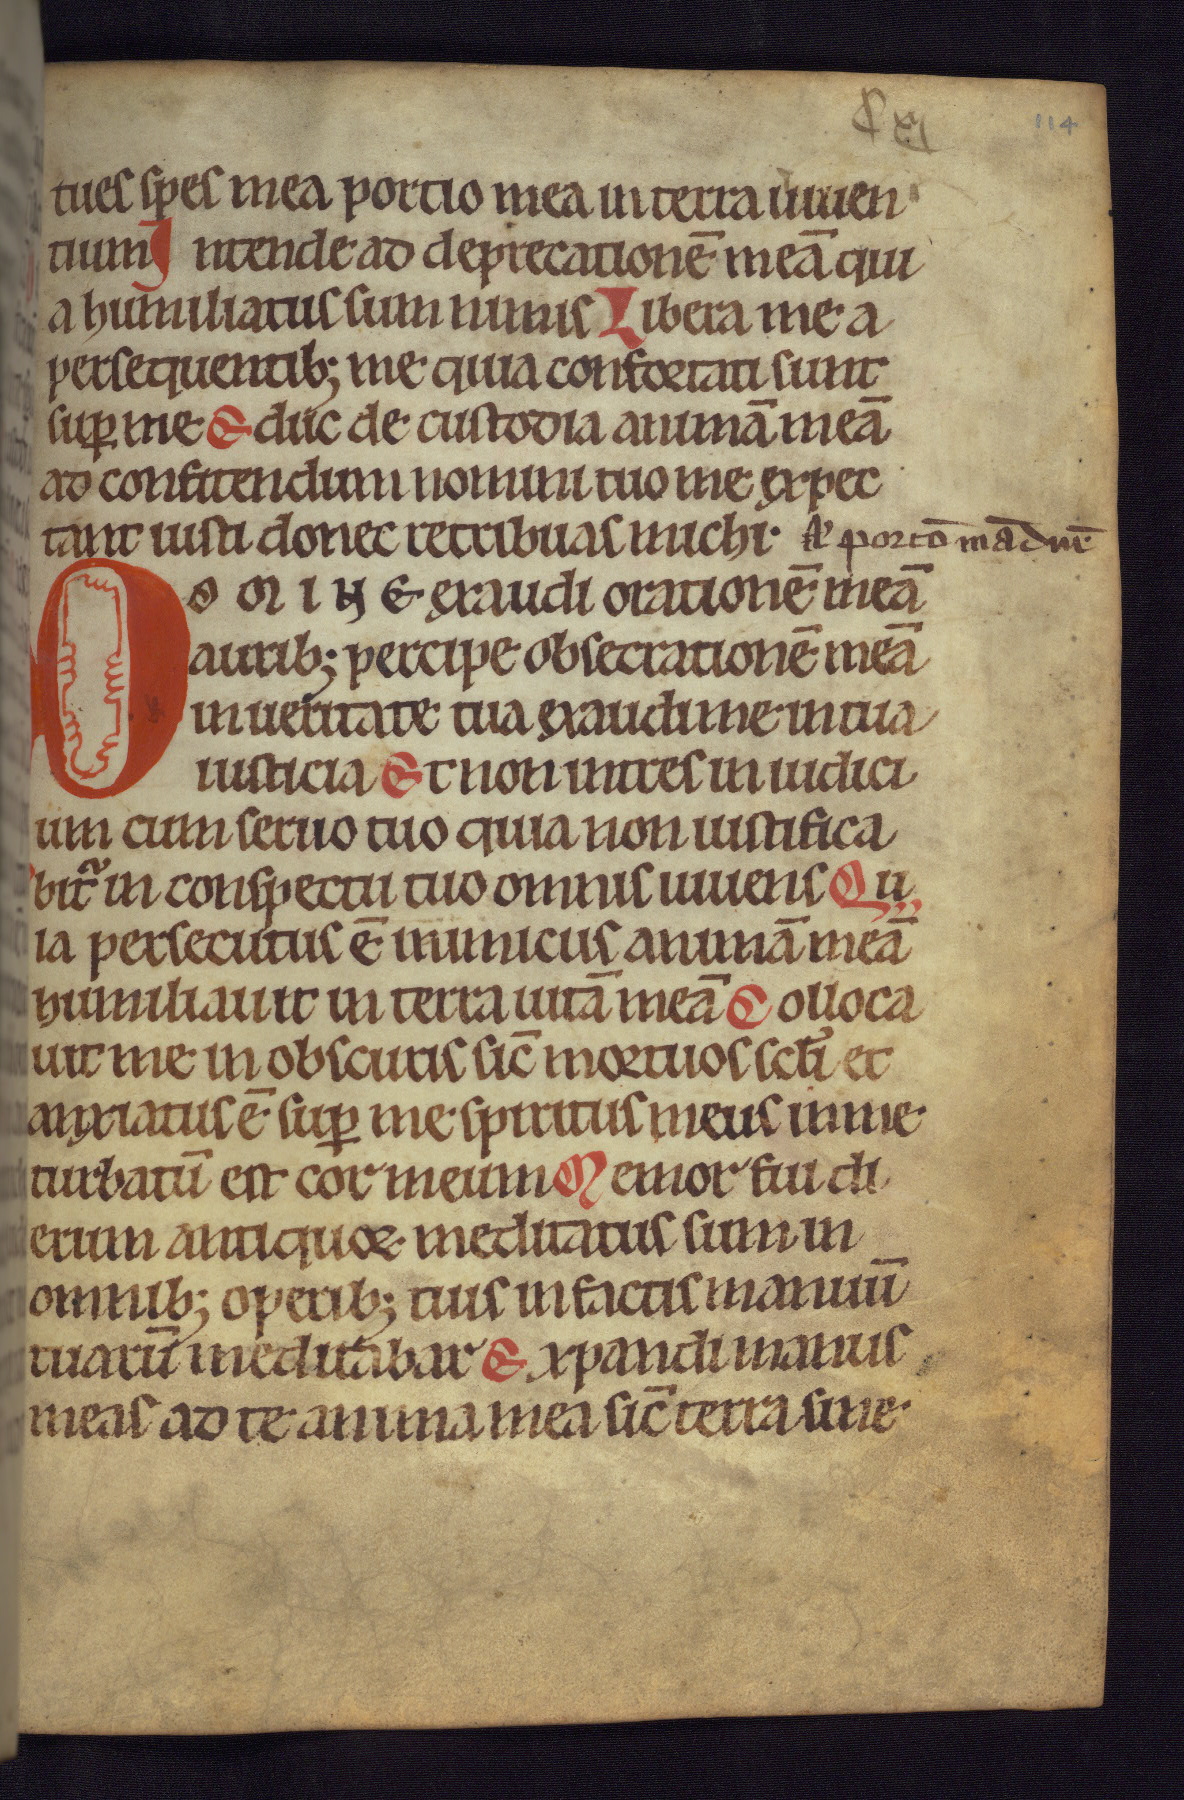 114
tu es spes mea portio mea in terra uiuen
tium Intende ad deprecationē meā qui
a humiliatus sum nimis Libera me a
persequentib; me quia confortati sunt
suꝑ me Educ de custodia animā meā
ad confitendum nomini tuo me expec
tant iusti donec retribuas michi
DOMINE exaudi orationē meā
aurib; percipe obsecrationē meā
in ueritate tua exaudi me in tua
iusticia Et non intres in iudici
um cum seruo tuo quia non iustifica
bit᷑ in conspectu tuo omnis uiuens Qu
ia persecutus ē inimicus animā meā
humiliauit in terra uitā meā Colloca
uit me in obscuris sic̄ mortuos scl̄i et
anxiatus ē suꝑ me spiritus meus in me
turbatū est cor meum Memor fui di
erum antiquoꝝ meditatus sum in
omnib; operib; tuis in factis manuū
tuarū meditabar Expandi manus
meas ad te anima mea sic̄ terra sine